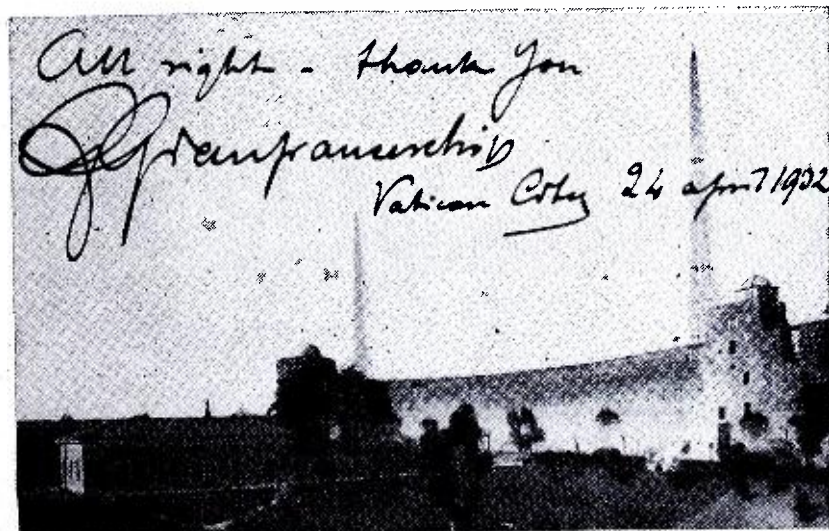 All right - thank you
G Gianfranceschi
Vatican City 24 april 1932